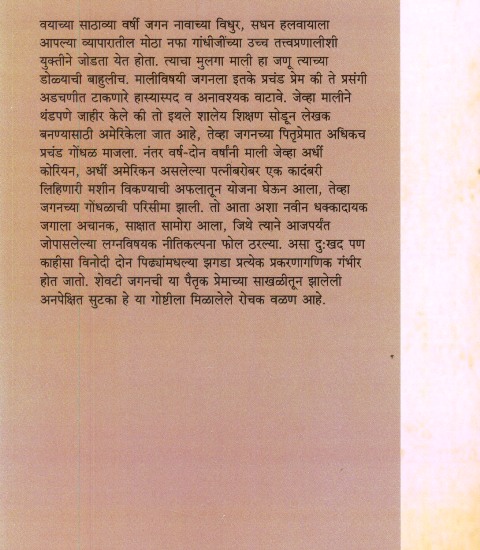 वयाच्या साठाव्या वर्षी जगन नावाच्या विधुर, सधन हलवायाला
आपल्या व्यापारातील मोठा नफा गांधीजींच्या उच्च तत्त्वप्रणालीशी
युक्तीने जोडता येत होता. त्याचा मुलगा माली हा जणू त्याच्या
डोळ्याची बाहुलीच. मालीविषयी जगनला इतके प्रचंड प्रेम की ते प्रसंगी
अडचणीत टाकणारे हास्यास्पद व अनावश्यक वाटावे. जेव्हा मालीने
थंडपणे जाहीर केले की तो इथले शालेय शिक्षण सोडून लेखक
बनण्यासाठी अमेरिकेला जात आहे, तेव्हा जगनच्या पितृप्रेमात अधिकच
प्रचंड गोंधळ माजला. नंतर वर्ष-दोन वर्षांनी माली जेव्हा अर्धी
कोरियन, अर्धी अमेरिकन असलेल्या पत्नीबरोबर एक कादंबरी
लिहिणारी मशीन विकण्याची अफलातून योजना घेऊन आला, तेव्हा
जगनच्या गोंधळाची परिसीमा झाली. तो आता अशा नवीन धक्कादायक
जगाला अचानक, साक्षात सामोरा आला, जिथे त्याने आजपर्यंत
जोपासलेल्या लग्नविषयक नीतिकल्पना फोल ठरल्या. असा दु:खद पण
काहीसा विनोदी दोन पिढ्यांमधल्या झगडा प्रत्येक प्रकरणागणिक गंभीर
होत जातो. शेवटी जगनची या पैतृक प्रेमाच्या साखळीतून झालेली
अनपेक्षित सुटका हे या गोष्टीला मिळालेले रोचक वळण आहे.